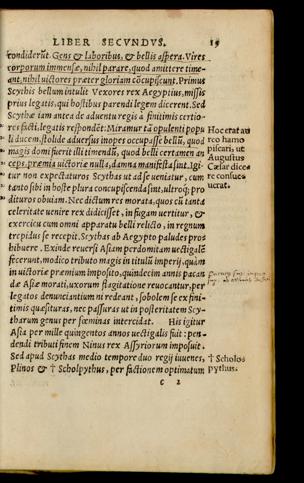 LIBER SECVNDVS. 15
condiderūt. Gens & laboribus, & bellis aspera. Vires
corporum immensæ, nihil parare, quod amittere time-
ant, nihil victores præter gloriam cōcupiscunt. Primus
Scythis bellum intulit Vexores rex Aegyptius, missis
prius legatis, qui hostibus parendi legem dicerent. Sed
Scythæ iam antea de aduentu regis à finitimis certio-
res facti, legatis respondēt: Miramur tā opulenti popu
li ducem, stolide aduersus inopes occupasse bellū, quod
magis domi fuerit illi timendū, quod belli certamen an
ceps, præmia victoriæ nulla, damna manifesta sint. Igi
tur non expectaturos Scythas ut ad se ueniatur, cum
tanto sibi in hoste plura concupiscenda sint, ultroq; præ
dituros obuiam. Nec dictum res morata, quos cū tanta
celeritate uenire rex didicisset, in fugam uertitur, &
exercitu cum omni apparatu belli relicto, in regnum
trepidus se recepit. Scythas ab Aegypto paludes pro-
hibuere. Exinde reuersi Asiam perdomitam uectigalē
fecerunt, modico tributo magis in titulū imperij, quàm
in victoriæ præmium imposito, quindecim annis pacan
dæ Asiæ morati, uxorum flagitatione reuocantur, per
legatos denunciantium ni redeant, sobolem se ex finiti-
timis quæsituras, nec passuras ut in posteritatem Scy-
tharum genus per fœminas intercidat. His igitur
Asia per mille quingentos annos uectigalis fuit: pen-
dendi tributi finem Ninus rex Assyriorum imposuit.
Sed apud Scythas medio tempore duo regij iuuenes,
Plinos & † Scholpythus, per factionem optimatum
C 2
Hoc erat au
reo hamo
piscari, ut
Augustus
Cæsar dice
re consue-
uerat.
† Scholos
pythus.